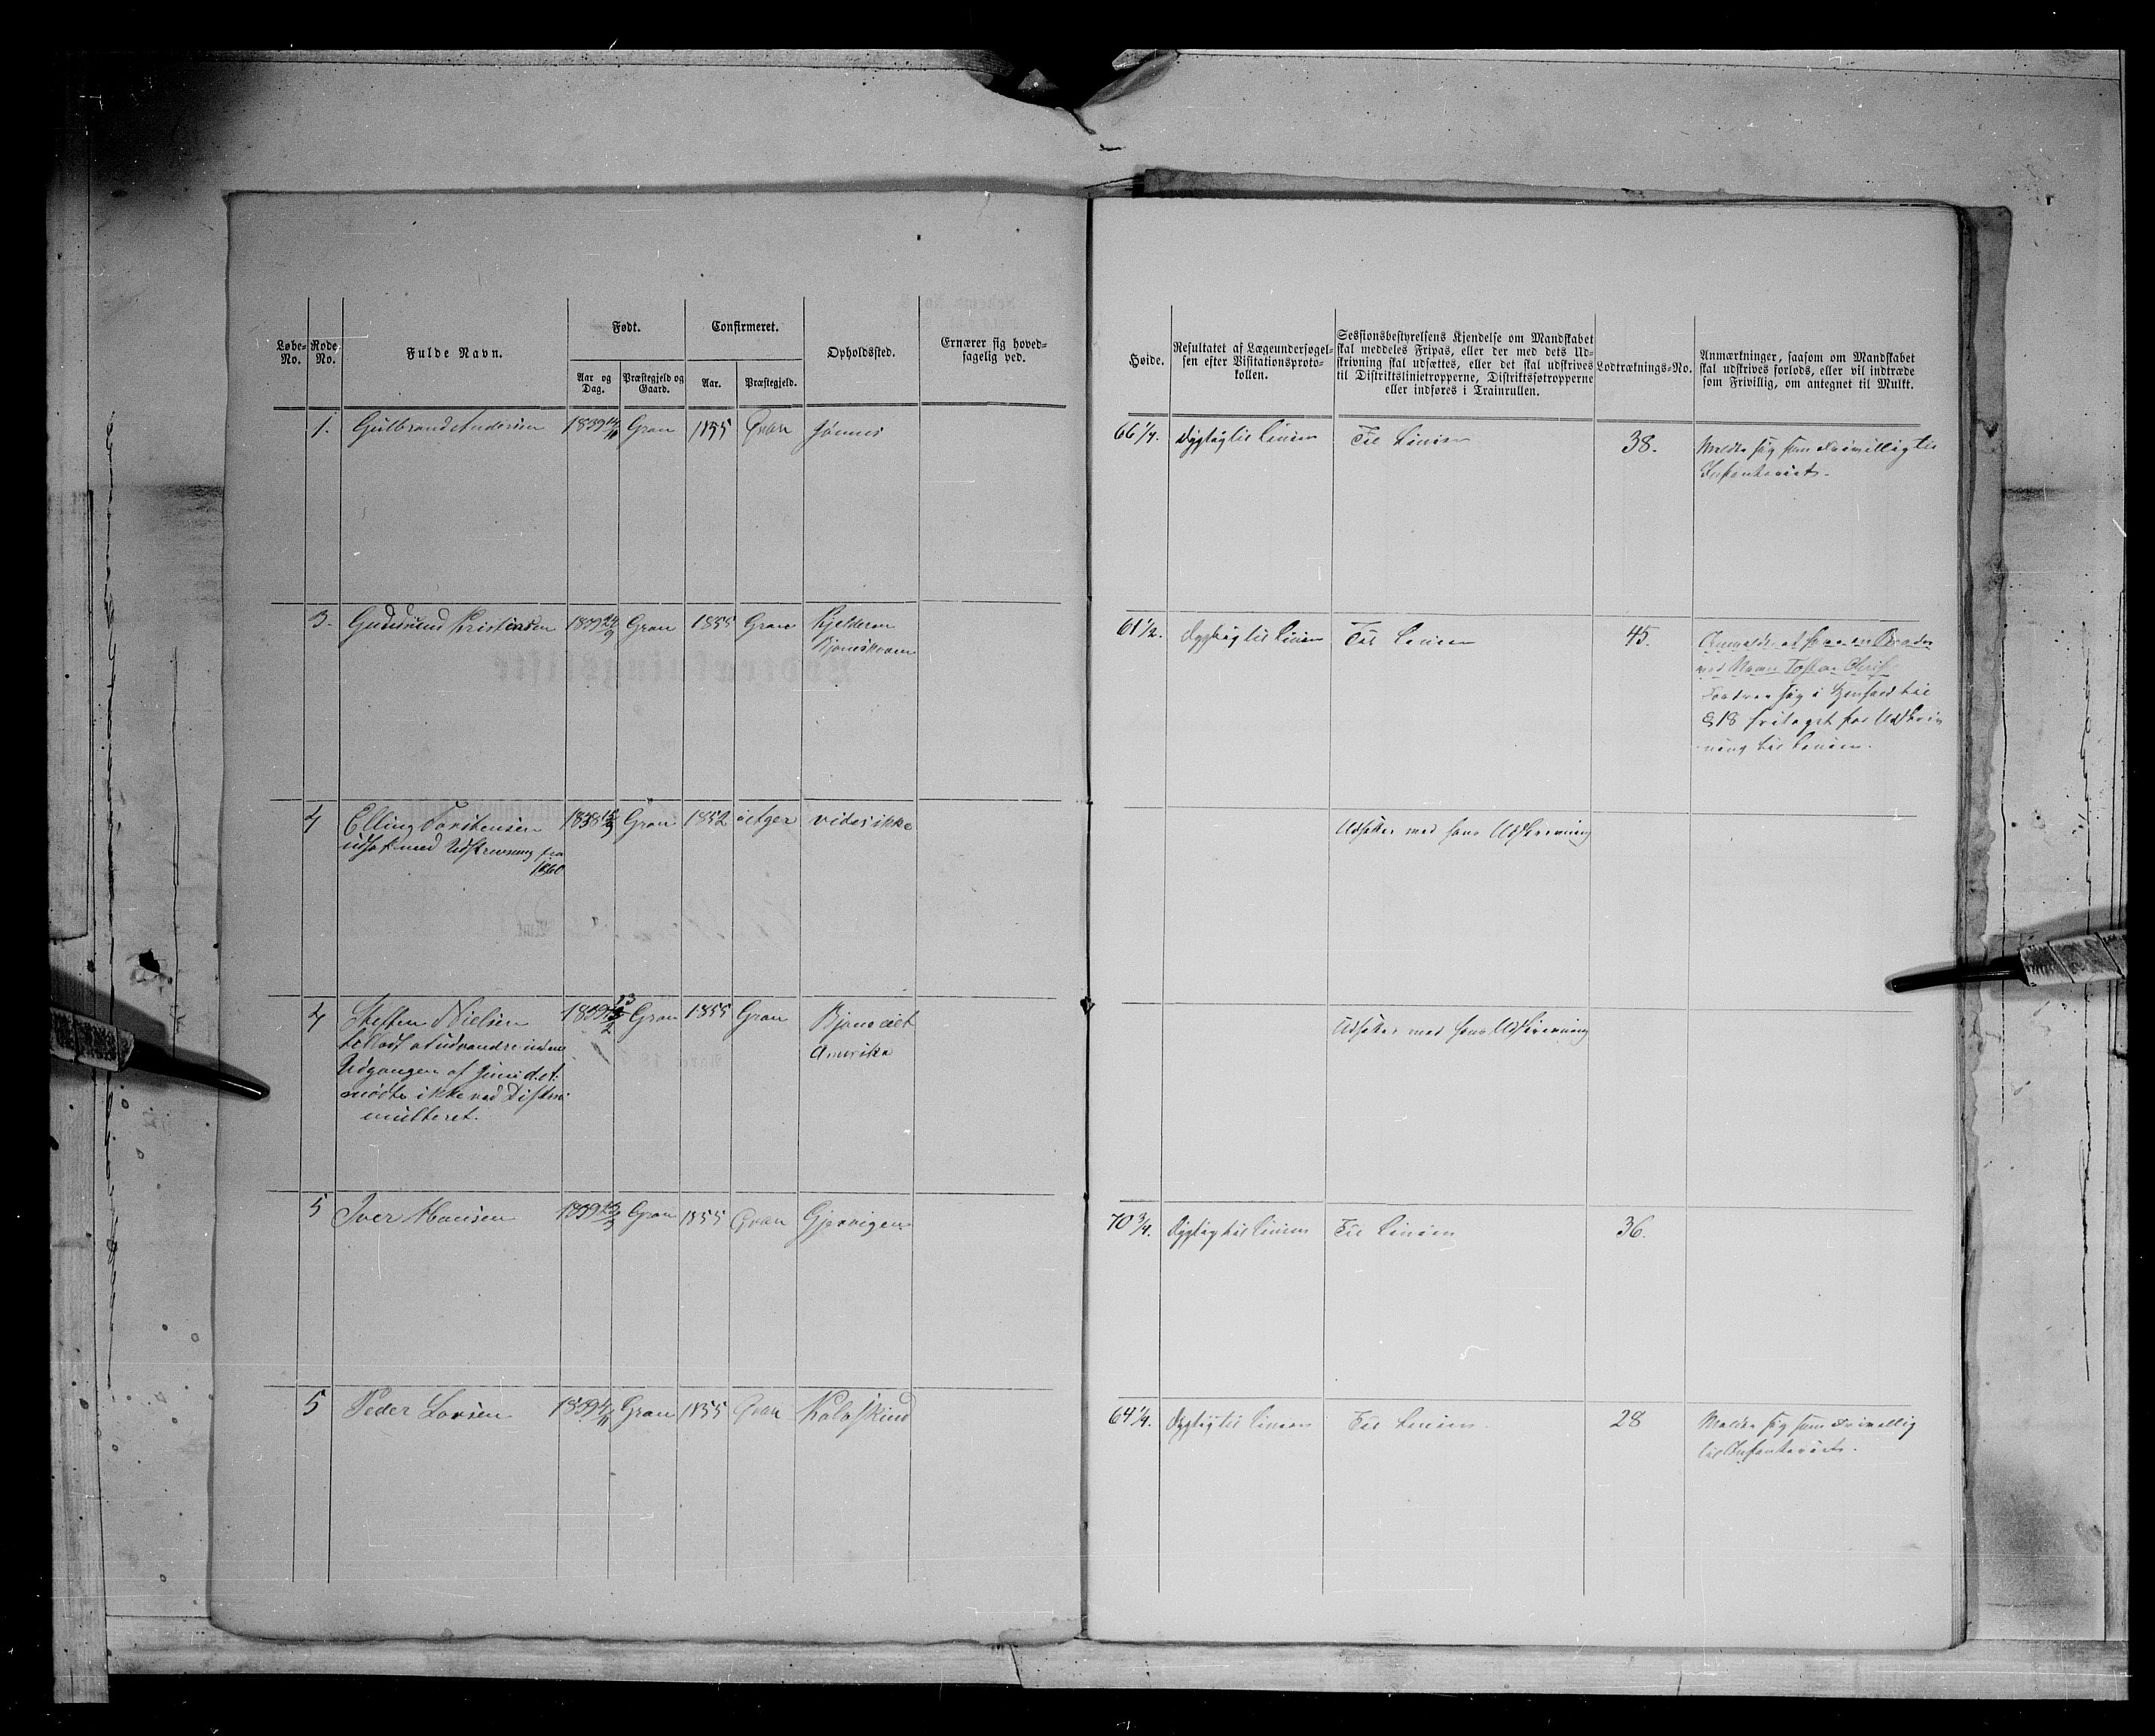 Løbe-No.
Rode No.
Fulde Navn.
Født.
Aar og Dag.
Præstegjeld og Gaard.
Confirmeret.
Aar.
Præstegjeld.
Opholdssted.
Ernærer sig hoved-
sagelig ved.
Høide.
Resultatet af Lægeundersøgel-
sen efter Visitationsproto-
kollen.
Sessionsbestyrelsens Kjendelse om Mandskabet
skal meddeles Fripas, eller der med dets Ud-
skrivning skal udsættes, eller det skal udskrives
til Distriktslinietropperne, Distriktssøtropperne
eller indføres i Trainrullen.
Lodtræknings-No.
Anmærkninger, saasom om Mandskabet
skal udskrives forlods, eller vil indtræde
som Frivillig, om antegnet til Mulkt.
1. Gulbrand Andersen 1839 Gran 1855 Gran 66 1/4. Dygtig til Linien Til Linien 38. Melder sig som Frivillig til
Infanteriet.
3. Gudmund Kristensen 1839 24/9 Gran 1855 Gran 61 1/2. Dygtig til Linien Til Linien 45.
§ 18 fritaget for Udskriv
ning til Linien.
4 Elling Torstensen 1838 Gran 1852 vides ikke Udsættes med hans Udskrivning
udsat med Udskrivning fra
1860
4 Steffen Nielsen 1839 Gran 1855 Gran Udsættes med hans Udskrivning
Amerika
Udgangen af Juni
mødte ikke ved
mulkteret.
5 Iver Hansen 1839 Gran 1855 Gran Gjøvigen 70 3/4. Dygtig til Linien Til Linien 36.
5 Peder Larsen 1839 Gran 1855 Gran 64 1/4. Dygtig til Linien Til Linien. 28 Melder sig som Frivillig
til Infanteriet.